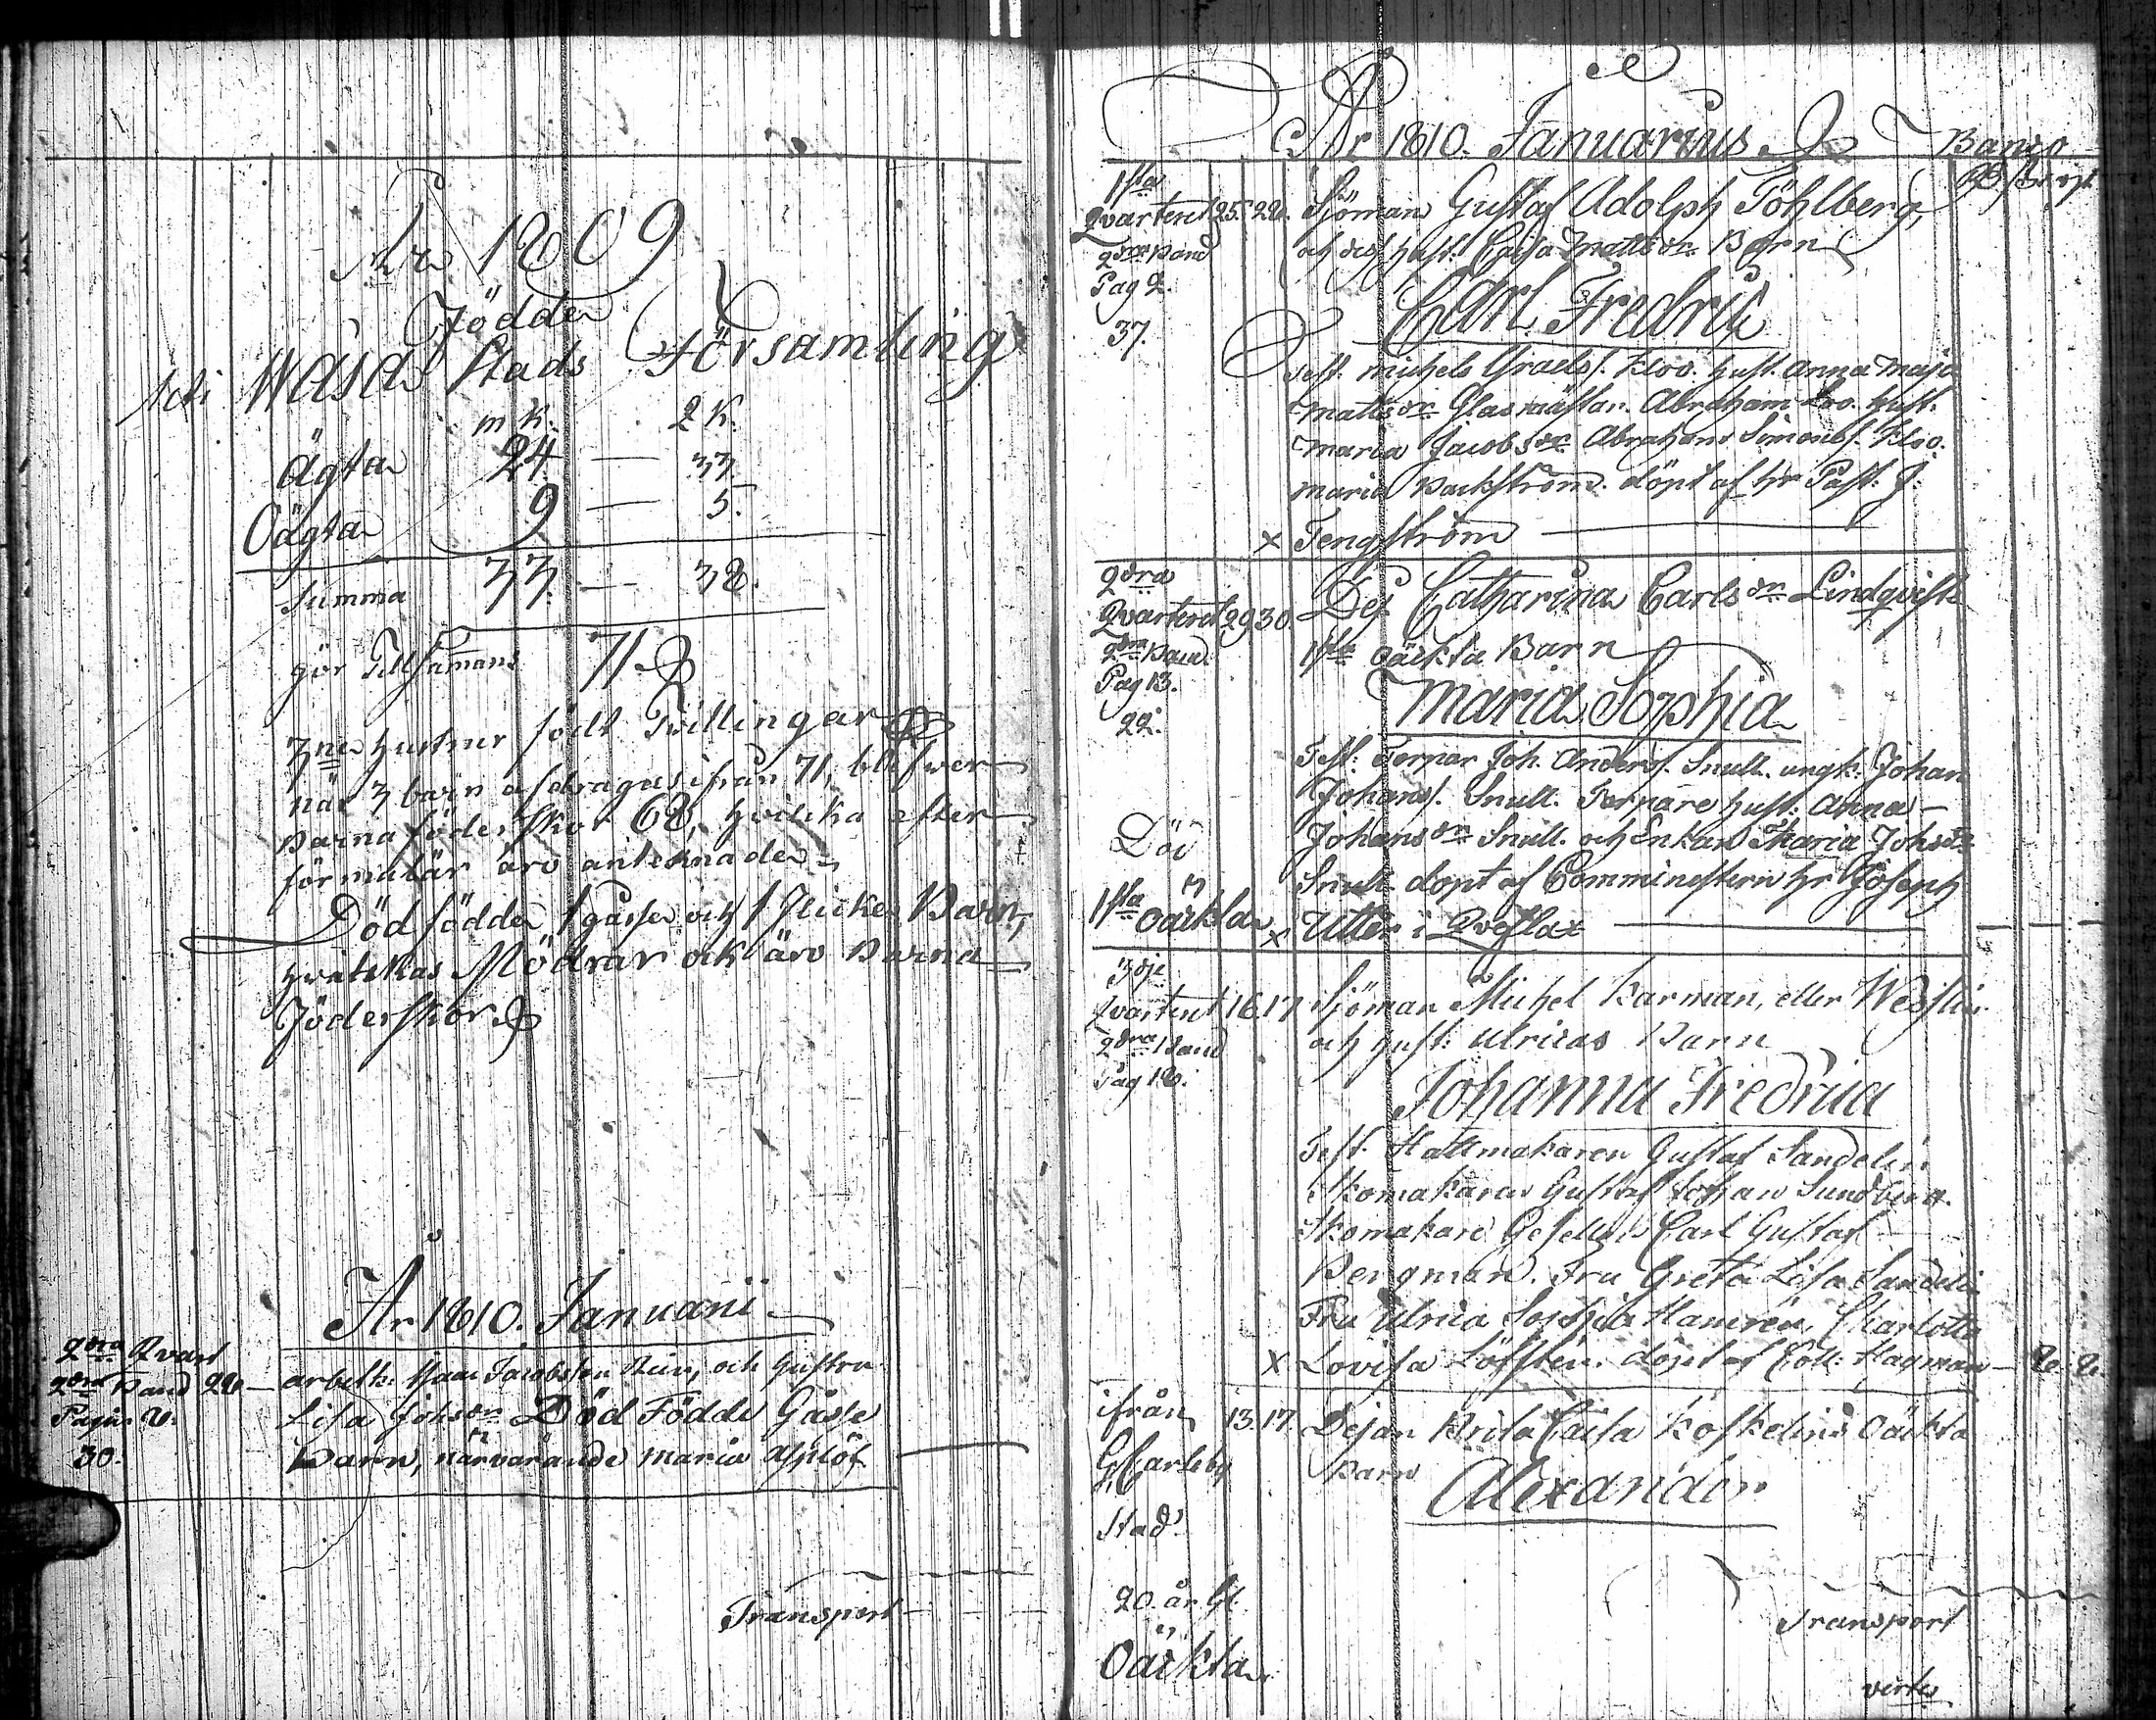 År 1809
Födde
uti Wasa Stads Församling
m K. 2 K.
Ägta 24 — 33.
Oägta 9 — 5.
Summa 33 — 38.
gör Tillsamans 71
3ne hustrur födt Tvillingar
när 3 barn afdragas ifrån 71, blifwer
Barnaföderskor 68, hvilcka efter
formulär äro antecknade
Död födde 1 gåsse och 1 Flicke Barn,
hvilckas Mödrar ock äro Barna
Föderskor
År 1810. Januarii
2dra Qvart
2dra Band 28
Pagin 8.
30.
arbetk. Jacobsson och hustru
Lisa Johsdr Död Födde Gåsse
Barn, närvarande Maria Asplöf
Transport
År 1810. Januarius
Banco
1sta
Qvarteret 25. 28.
2dra Band
Pag 2.
37.
Sjöman Gustaf Adolph Föhlberg,
och dess hust. Caisa Mattsdr Barn
Carl Fredric
Test. Michels hust. Anna Maja
Mattsdr Glasmästar. Abraham hust.
Maria Jacobsdr Abraham Simons
Maria Backström. döpt af Hr Past. J.
x Tengström
2dra
Qvarteret 29 30.
2dra Band
Pag 13.
22.
Död
1sta oäckta
Pig. Catharina Carlsdr Lindqvists
1sta oäckta Barn
Maria Sophia
Test: Torpar Joh. Anders. Snull. ungk. Johan
Johans. Snull. Torpare hust. Anna
Johansdr Snull. och Enkan Maria Johsdr
Snull. döpt af Comministern Hr Joseph
x Utter i Qveflax
3dje
Qvarteret 16. 17
2dra Band
Pag 18.
Sjöman Michel Karman, eller
och hust: Ulricas Barn
Johanna Fredrica
Test. Hattmakaren Gustaf Sandelin
Skomakaren Gustaf Johan Sundberg.
Skomakare Gesellen Carl Gustaf
Bergman. Fru Greta Lisa Sandelin
Fru Ulrica Sophia Hamrén, Charlotta
x Lovisa Löfsten. döpt af Coll. Hagman — 8. 8.
ifrån 13. 17.
G. Carleby
Stad.
20 år Gl.
Oäckta
Pigan Brita Caisa Koskelins Oäckta
Barn
Alexander
Transport
verte